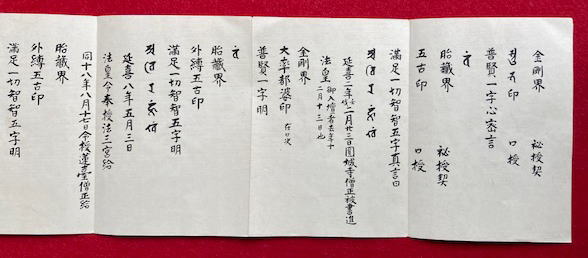 金剛界 秘授契
印 口授
普賢一字心密言
胎藏界 秘授契
五古印 口授
滿足一切智智五字真言曰
延喜二年二月廿三日圓城寺僧正被書進
法皇 御入壇者去年十
二月十三日也
金剛界
大率都婆印 在口
普賢一字明
胎藏界
外縛五古印
滿足一切智智五字明
延喜八年五月三日
法皇令奉授法三宮給
同十八年八月十七日令授蓮臺僧正給
胎藏界
外縛五古印
滿足一切智智五字明